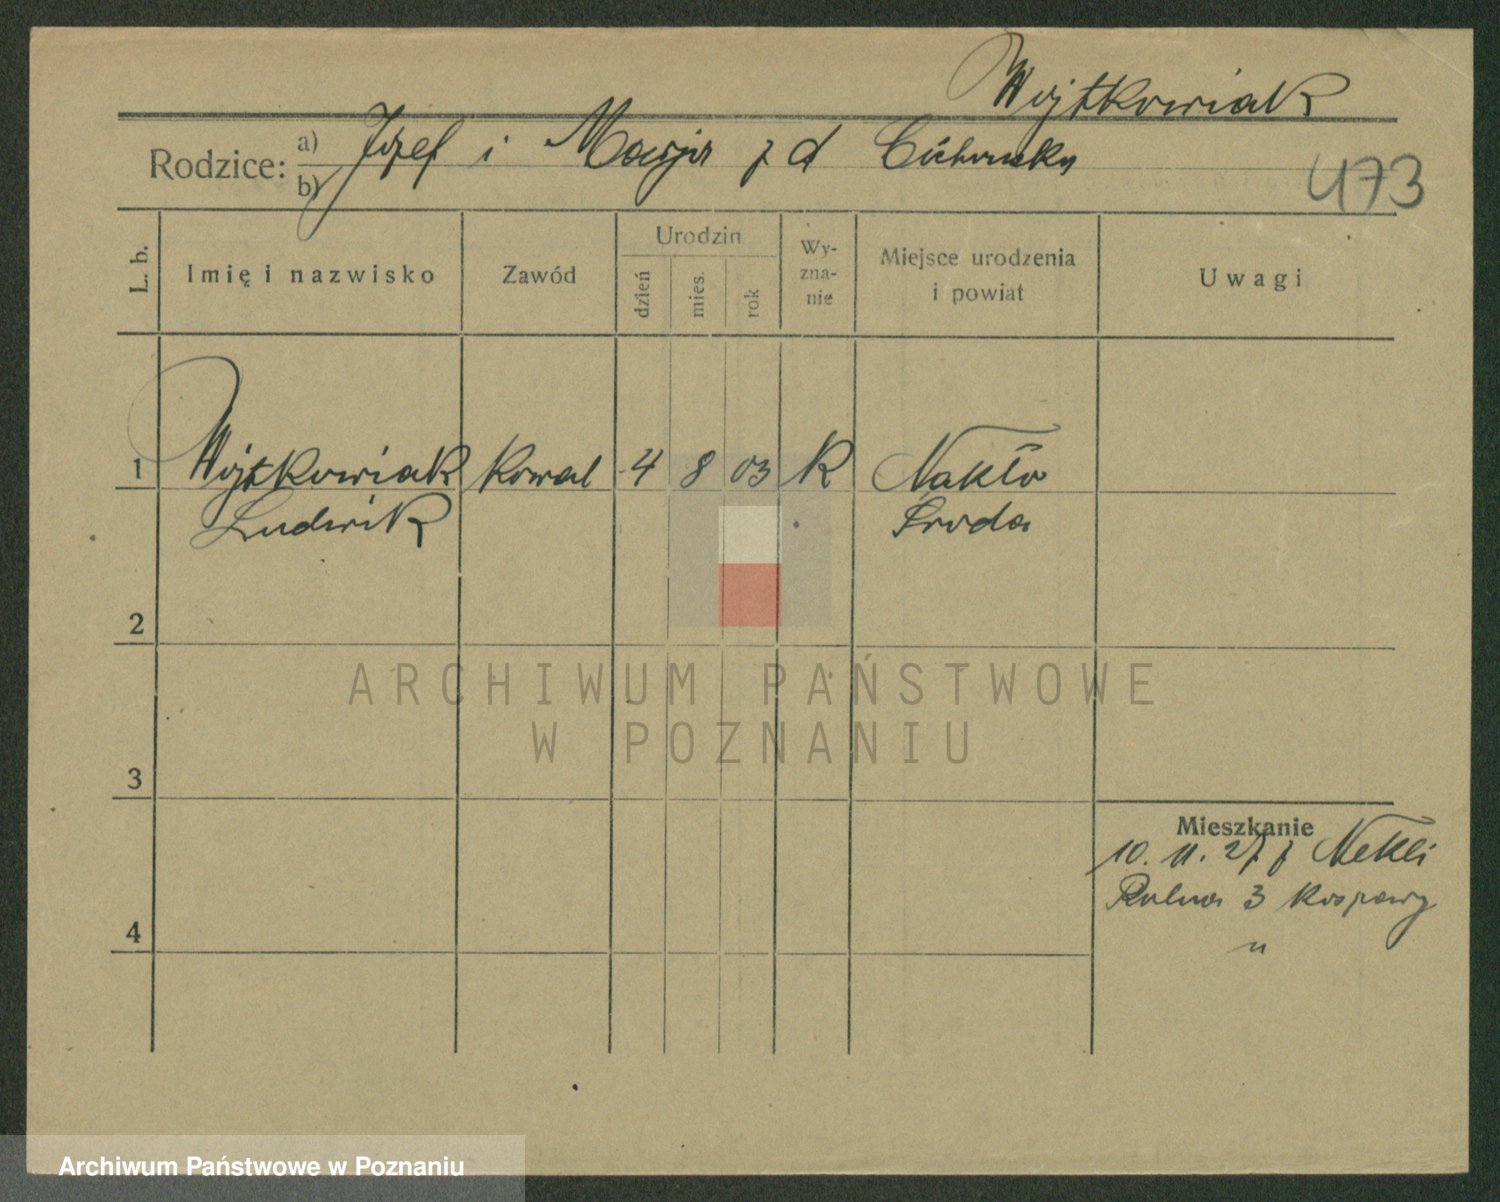 Wojtkowiak
Rodzice: a) b) Józef i Maryja z d Cichowska
473
L. b.
Imię i nazwisko
Zawód
Urodzin
dzień
mies.
rok
Wy-
zna-
nie
Miejsce urodzenia
i powiat
Uwagi
1 Wojtkowiak Kowal 4 8 03 K Nakło
Ludwik Środa
2
3
4
Mieszkanie
10. 11. 27 z Nekli
Rolna 3
ARCHIWUM PAŃSTWOWE
W POZNANIU
Archiwum Państwowe w Poznaniu